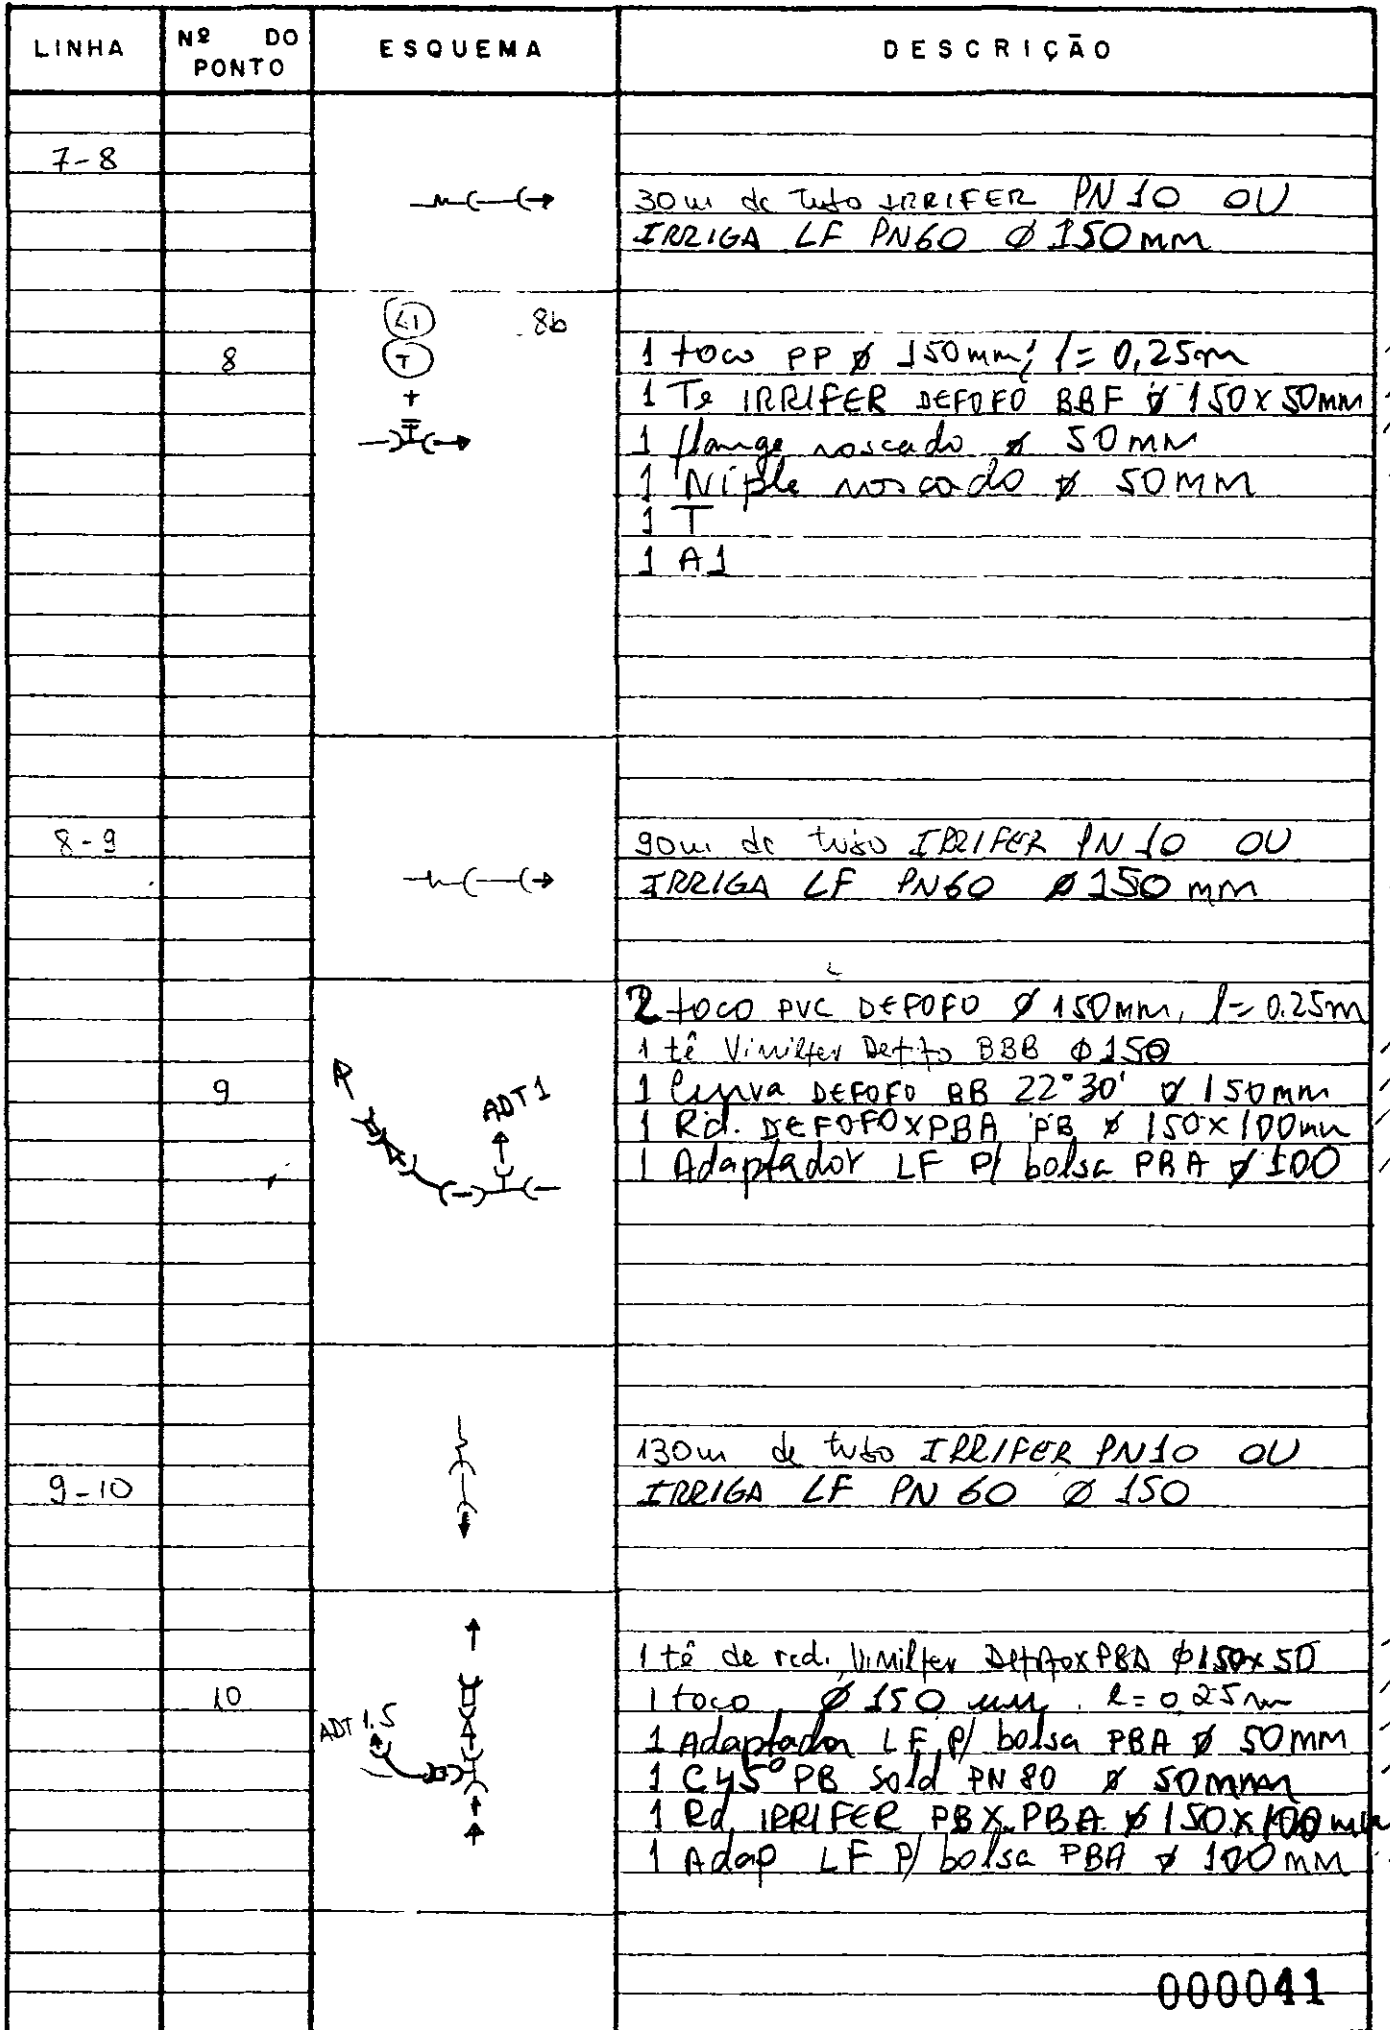 LINHA
Nº DO PONTO
ESQUEMA
DESCRIÇÃO
7-8
30m de tubo IRRIFER PN 10 OU
IRRIGA LF PN60 Ø 150MM
8b
T
8
1 toco PP Ø 150mm; l= 0,25m
+
1 Te IRRIFER DEFOFO BBF Ø 150X50MM
1 flange roscado Ø 50MM
1 Niple roscado Ø 50MM
1 T
1 A1
8-9
90m de tubo IRRIFER PN 10 OU
IRRIGA LF PN60 Ø 150 MM
2 toco PVC DEFOFO Ø 150MM, l= 0.25m
1 tê Vinilfer Defofo BBB Ø 150
9
ADT1
1 Curva DEFOFO BB 22°30' Ø 150MM
1 Rd. DEFOFOXPBA PB Ø 150X100mm
1 Adaptador LF P/ bolsa PBA Ø 100
130m de tubo IRRIFER PN10 OU
9-10
IRRIGA LF PN 60 Ø 150
1 tê de red. Vinilfer DefofoxPBA Ø150x50
10
1 toco Ø 150 mm. l=0,25m
ADT 1.5
1 Adaptador LF P/ bolsa PBA Ø 50MM
1 C45° PB Sold PN 80 Ø 50mm
1 Rd. IRRIFER PBX PBA Ø 150X100 mm
1 Adap LF P/ bolsa PBA Ø 100MM
000041